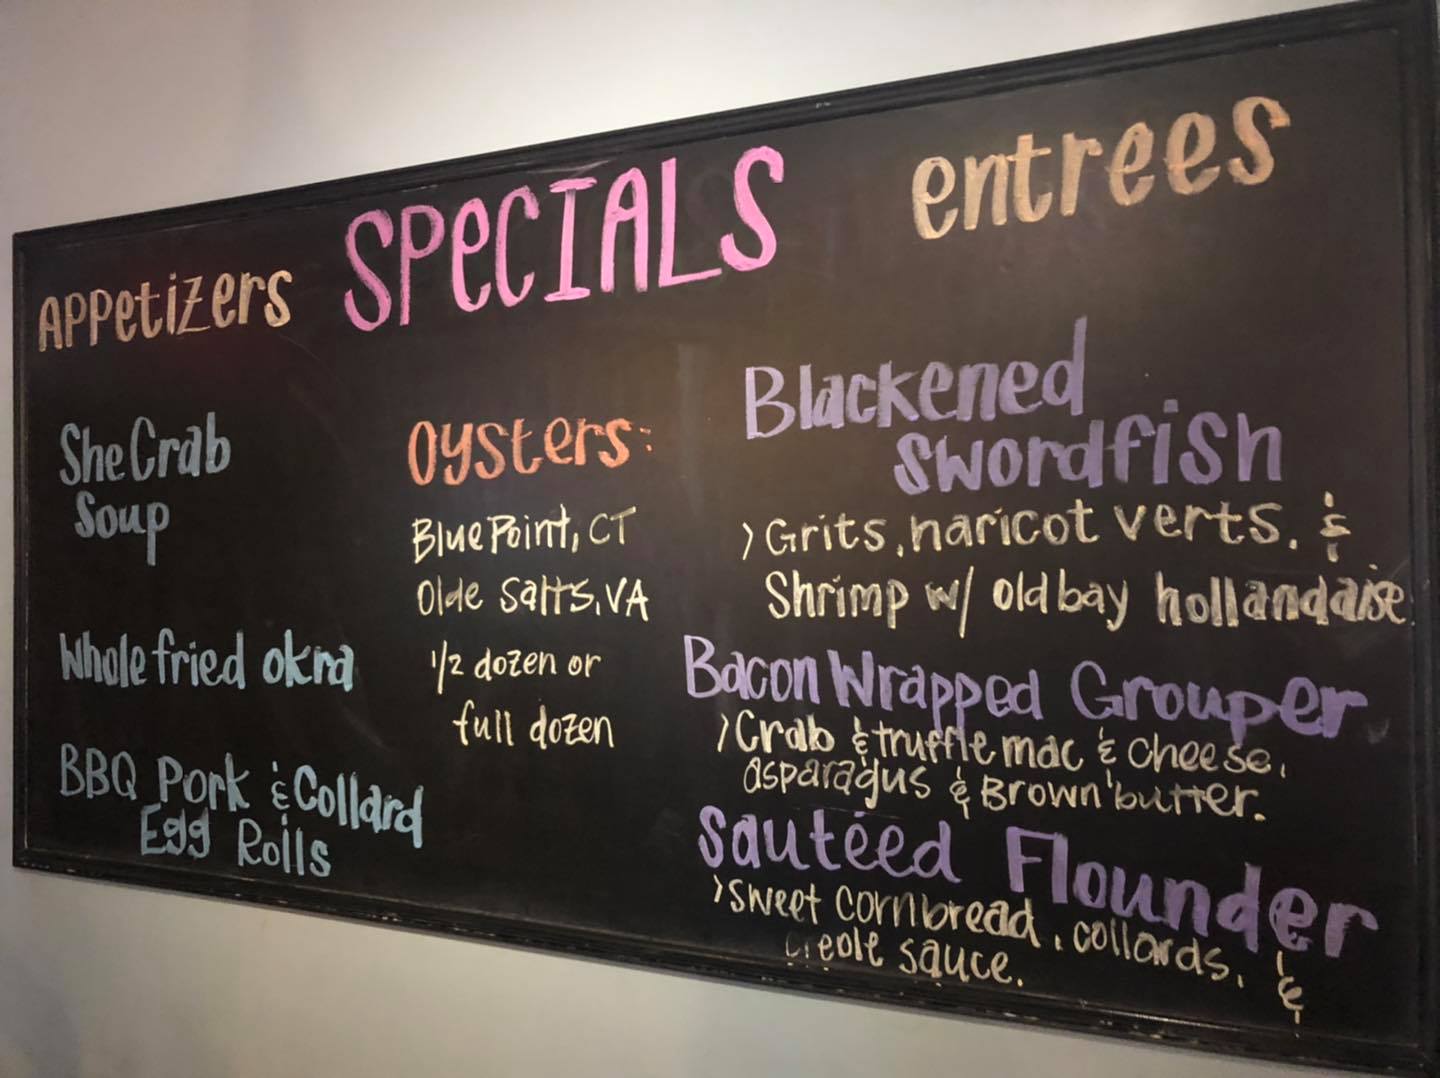 SPECIALS
APPetizers
She Crab
Soup
Whole fried okra
BBQ Pork & Collard
Egg Rolls
Oysters:
Blue Point, CT
Olde Salts, VA
1/2 dozen or
full dozen
entrees
Blackened
Swordfish
> Grits, haricot verts, &
Shrimp w/ old bay hollandaise
Bacon Wrapped Grouper
> Crab & truffle mac & cheese,
asparagus & Brown butter.
Sautéed Flounder
> Sweet cornbread, collards, &
creole sauce.